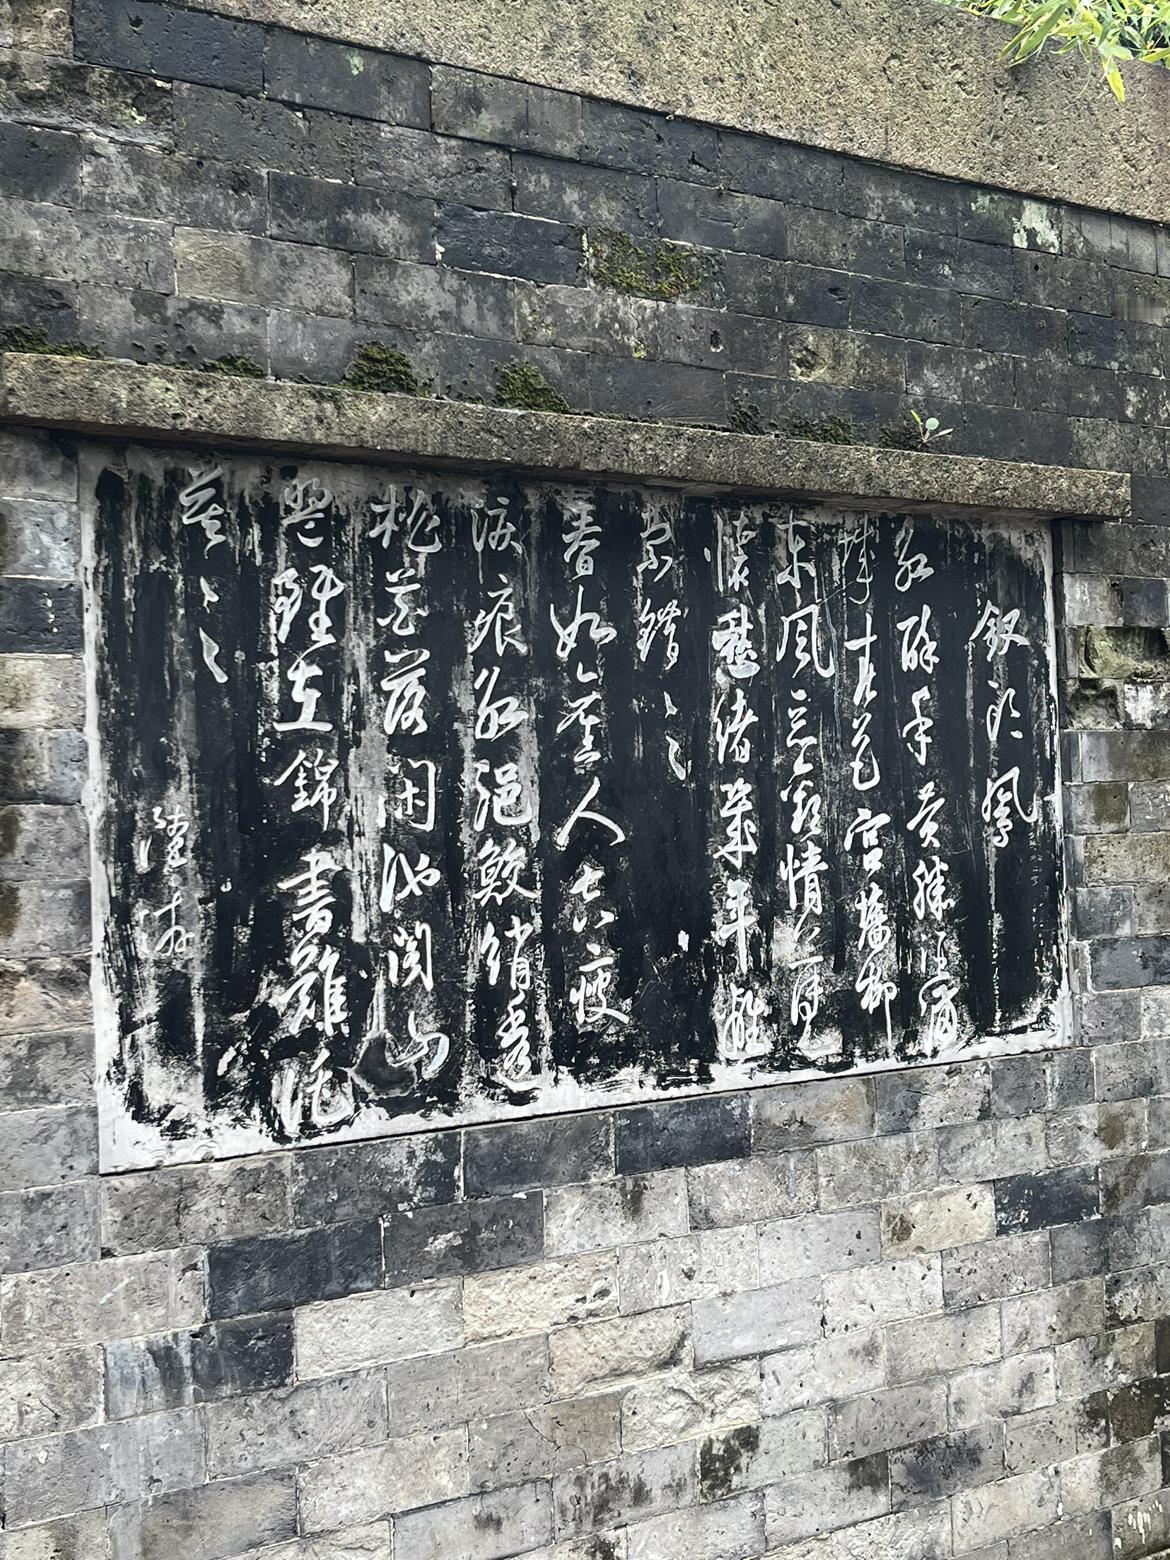 釵頭鳳
紅酥手黄縢酒滿
城春色宫墻柳
東風惡歡情薄一
懷愁緒幾年離
索錯々々
春如舊人空瘦
淚痕紅浥鮫綃透
桃花落閑池閣山
盟雖在錦書難託
莫々々
陸游